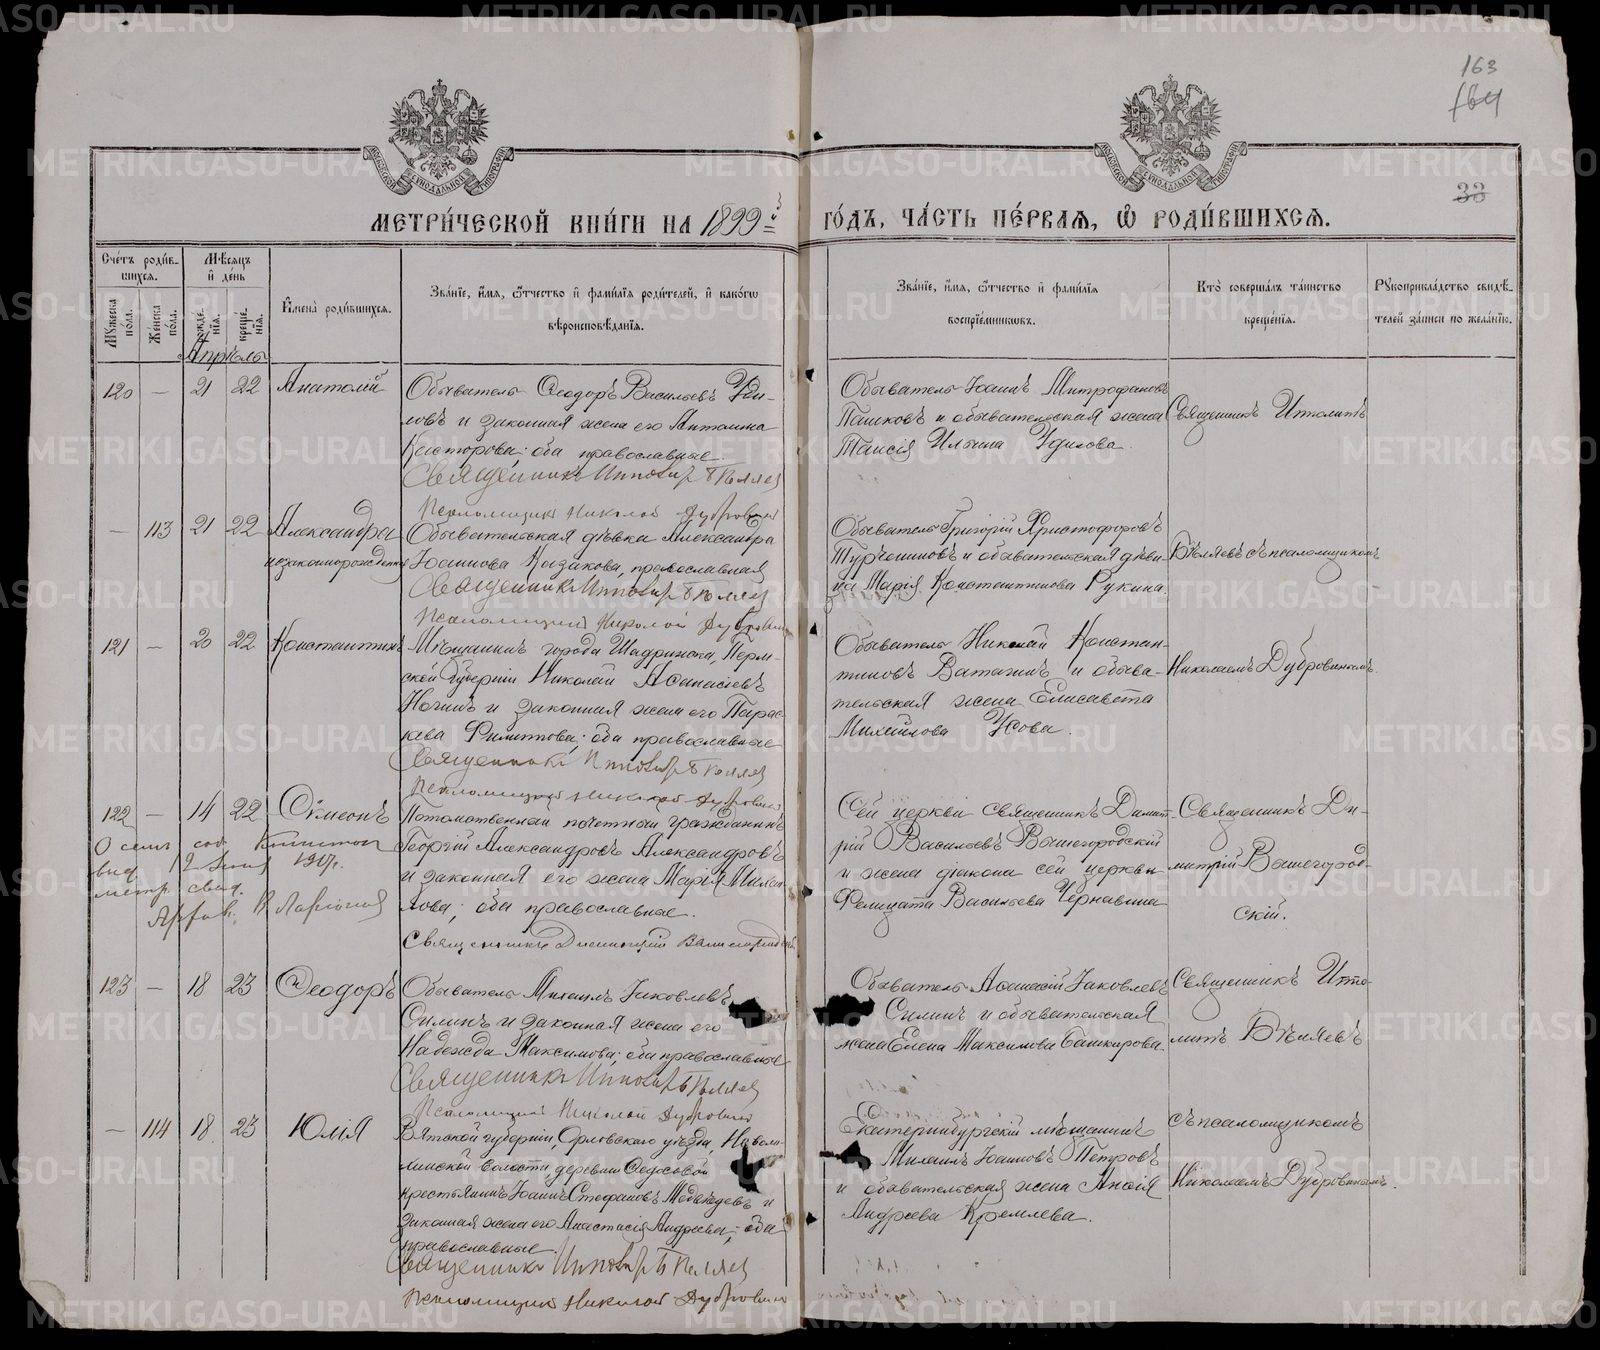 163
164
33
МЕТРИ́ЧЕСКОЙ КНИ́ГИ НА 1899й
ГО́ДЪ, ЧА́СТЬ ПЕ́РВАѦ, Ѽ РОДИ́ВШИХСѦ.
Сче́тъ роди́вшихсѧ.
Мѣ́сѧцъ и҆ де́нь
Мꙋ́жеска по́ла.
Же́нска по́ла.
рожде́нїѧ.
креще́нїѧ.
И҆мена̀ роди́вшихсѧ.
Зва́нїе, и҆́мѧ, ѻ҆́тчество и҆ фами́лїѧ роди́телей, и҆ како́гѡ
вѣроисповѣ́данїѧ.
Зва́нїе, и҆́мѧ, ѻ҆́тчество и҆ фами́лїѧ
воспрїе́мникѡвъ.
Кто̀ соверша́лъ та́инство
креще́нїѧ.
Рꙋкоприкла́дство свидѣ́-
телей за́писи по жела́нїю.
Апрѣль
120 — 21 22 Анатолій
Обыватель Ѳеодоръ Васильевъ Уди-
ловъ и законная жена его Антонина
Касторова; оба православные.
Священникъ Ипполитъ Бѣляевъ
Псаломщикъ Николай Дубровинъ
Обыватель Іоаннъ Митрофановъ
Пашковъ и обывательская жена
Таисія Ильина Удилова.
Священникъ Иполитъ
— 113 21 22 Александра
незаконнорожденная
Обывательская дѣвка Александра
Іоаннова Казакова, православная
Священникъ Ипполитъ Бѣляевъ
Псаломщикъ Николай Дубровинъ
Обыватель Григорій Христофоровъ
Турчаниновъ и обывательская дѣви-
ца Марія Константинова Рукина.
Бѣляевъ съ псаломщикомъ
121 — 20 22 Константинъ
Мѣщанинъ города Шадринска, Перм-
ской губерніи Николай Аѳанасіевъ
Ночинъ и законная жена его Парас-
кева Филиппова; оба православные
Священникъ Ипполитъ Бѣляевъ
Псаломщикъ Николай Дубровинъ
Обыватель Николай Констан-
тиновъ Ватагинъ и обыва-
тельская жена Елисавета
Михайлова Усова.
Николаемъ Дубровинымъ.
122 — 14 22 Сѵмеонъ
О семъ
выд. 12 1917г.
метр. свид.
Потомственный почетный гражданинъ
Георгій Александровъ Александровъ
и законная его жена Марія Михай-
лова; оба православные.
Священникъ Димитрій Вышегородскій
Сей церкви священникъ Димит-
рій Васильевъ Вышегородскій
и жена діакона сей церкви
Фелицата Васильева Чернавина
Священникъ Ди-
митрій Вышегород-
скій.
123 — 18 23 Ѳеодоръ
Обыватель Михаилъ Іаковлевъ
Силинъ и законная жена его
Надежда Максимова; оба православные
Священникъ Ипполитъ Бѣляевъ
Псаломщикъ Николай Дубровинъ
Обыватель Аѳанасій Іаковлевъ
Силинъ и обывательская
жена Елена Максимова Башкирова.
Священникъ Иппо-
литъ Бѣляевъ
— 114 18 23 Юлія
Вятской губерніи, Орловскаго уѣзда,
волости, деревни Ѳедосовой
крестьянинъ Іоаннъ Стефановъ Медвѣдевъ и
законная жена его Анастасія Андреева; оба
православные.
Священникъ Ипполитъ Бѣляевъ
Псаломщикъ Николай Дубровинъ
Екатеринбургскій мѣщанинъ
Михаилъ Іоанновъ Петровъ
и обывательская жена Анисія
Андреева Кремлева.
съ псаломщикомъ
Николаемъ Дубровинымъ.
METRIKI.GASO-URAL.RU